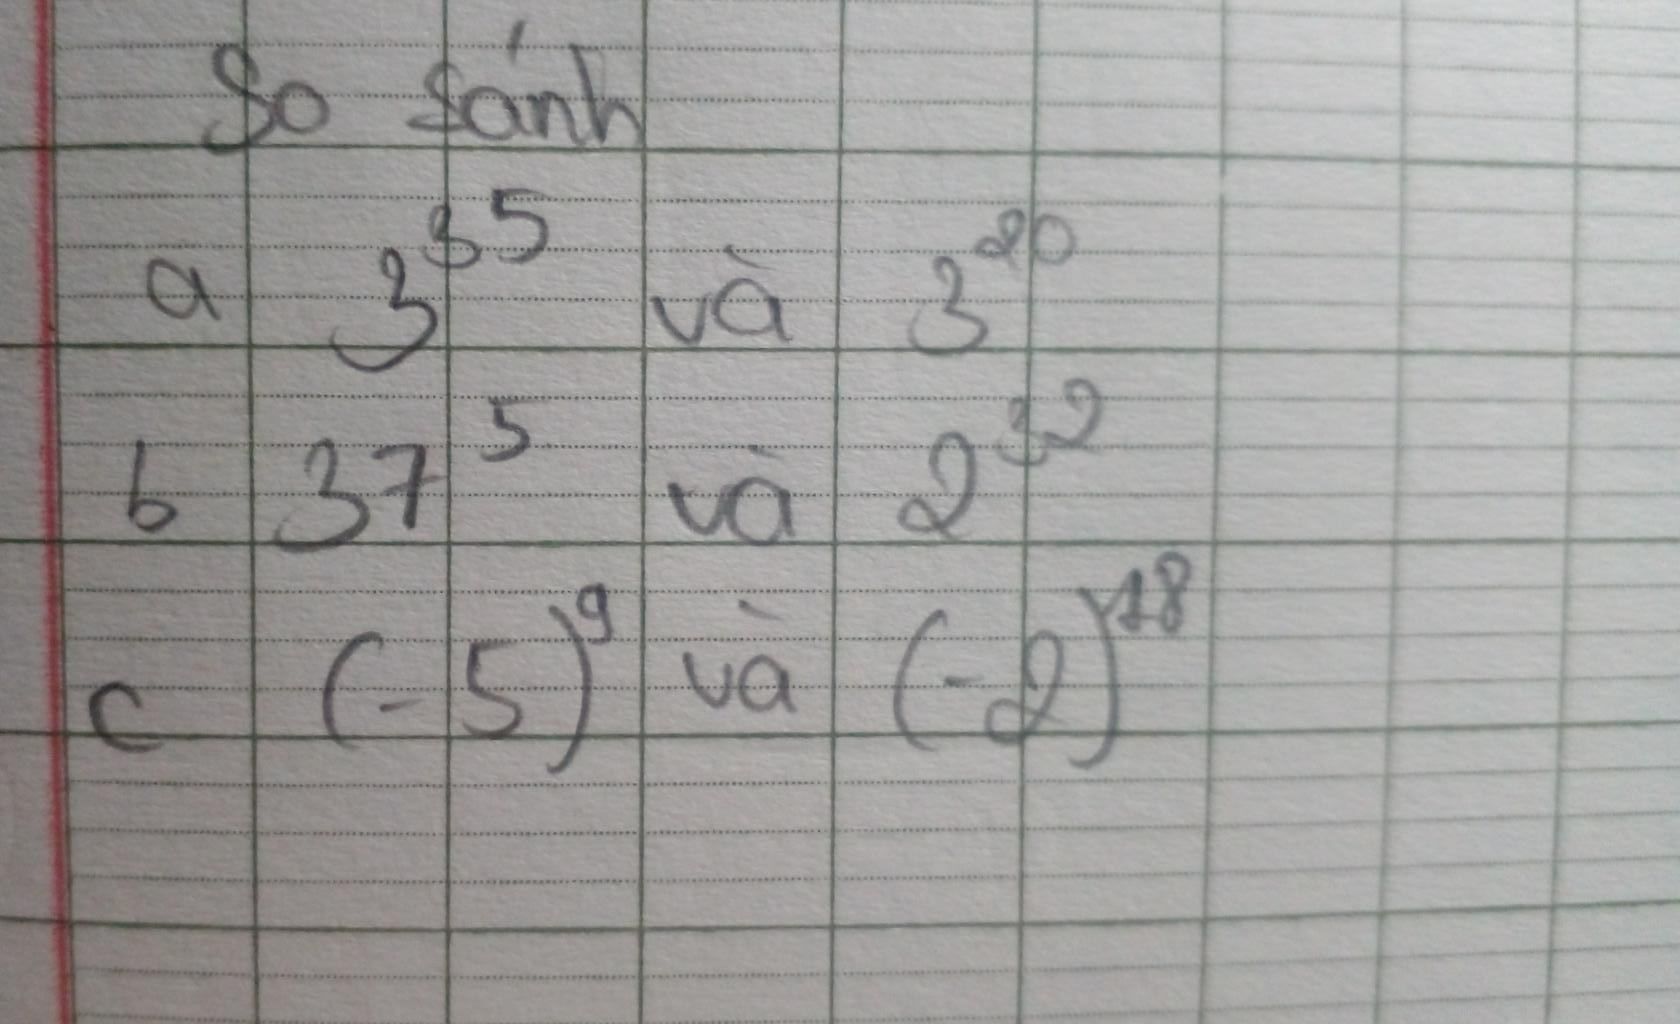 So sánh
a 3^35 và 3^20
b 37^5 và 2^32
c (-5)^9 và (-2)^18